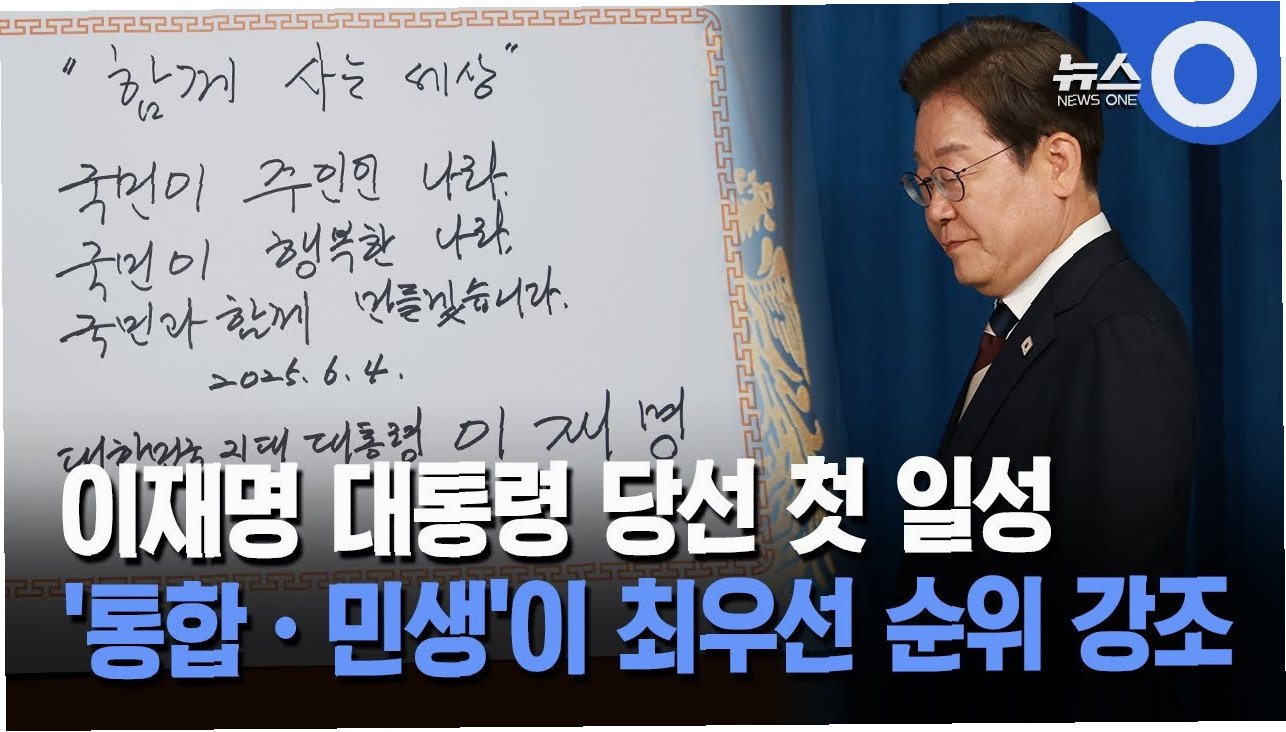 "함께 사는 세상"
국민이 주인인 나라,
국민이 행복한 나라,
국민과 함께 만들겠습니다.
2025. 6. 4.
대한민국 21대 대통령 이재명
뉴스
NEWS ONE
이재명 대통령 당선 첫 일성
'통합·민생'이 최우선 순위 강조